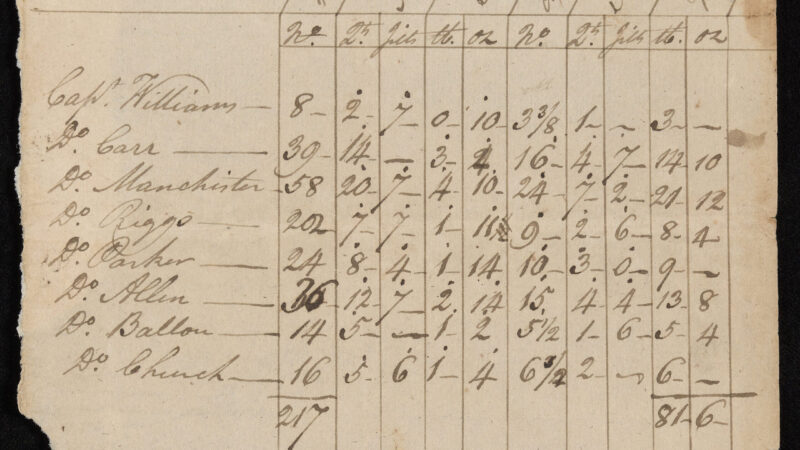 No. Qts jills lb. oz No. Qts jills lb. oz
Capt. Williams — 8 – 2 – 7 – 0 – 10 – 3 3/8 1 – – 3 – –
Do Carr — 39 – 14 – – 3 – 4 16 – 4 – 7 – 14 10
Do Manchister – 58 20 – 7 – 4 – 10 – 24 – 7 – 2 – 21 – 12
Do Riggs — 22 – 7 – 7 – 1 – 11 9 – 2 – 6 – 8 – 4
Do Parker — 24 8 – 4 – 1 – 14 10 – 3 – 0 – 9 – –
Do Allen — 36 – 12 – 7 – 2 – 14 15 4 – 4 – 13 – 8
Do Ballou — 14 5 – – 1 – 2 5 1/2 1 – 6 – 5 – 4
Do Church — 16 5 – 6 1 – 4 6 2 – – 6 – –
217 81 – 6 –